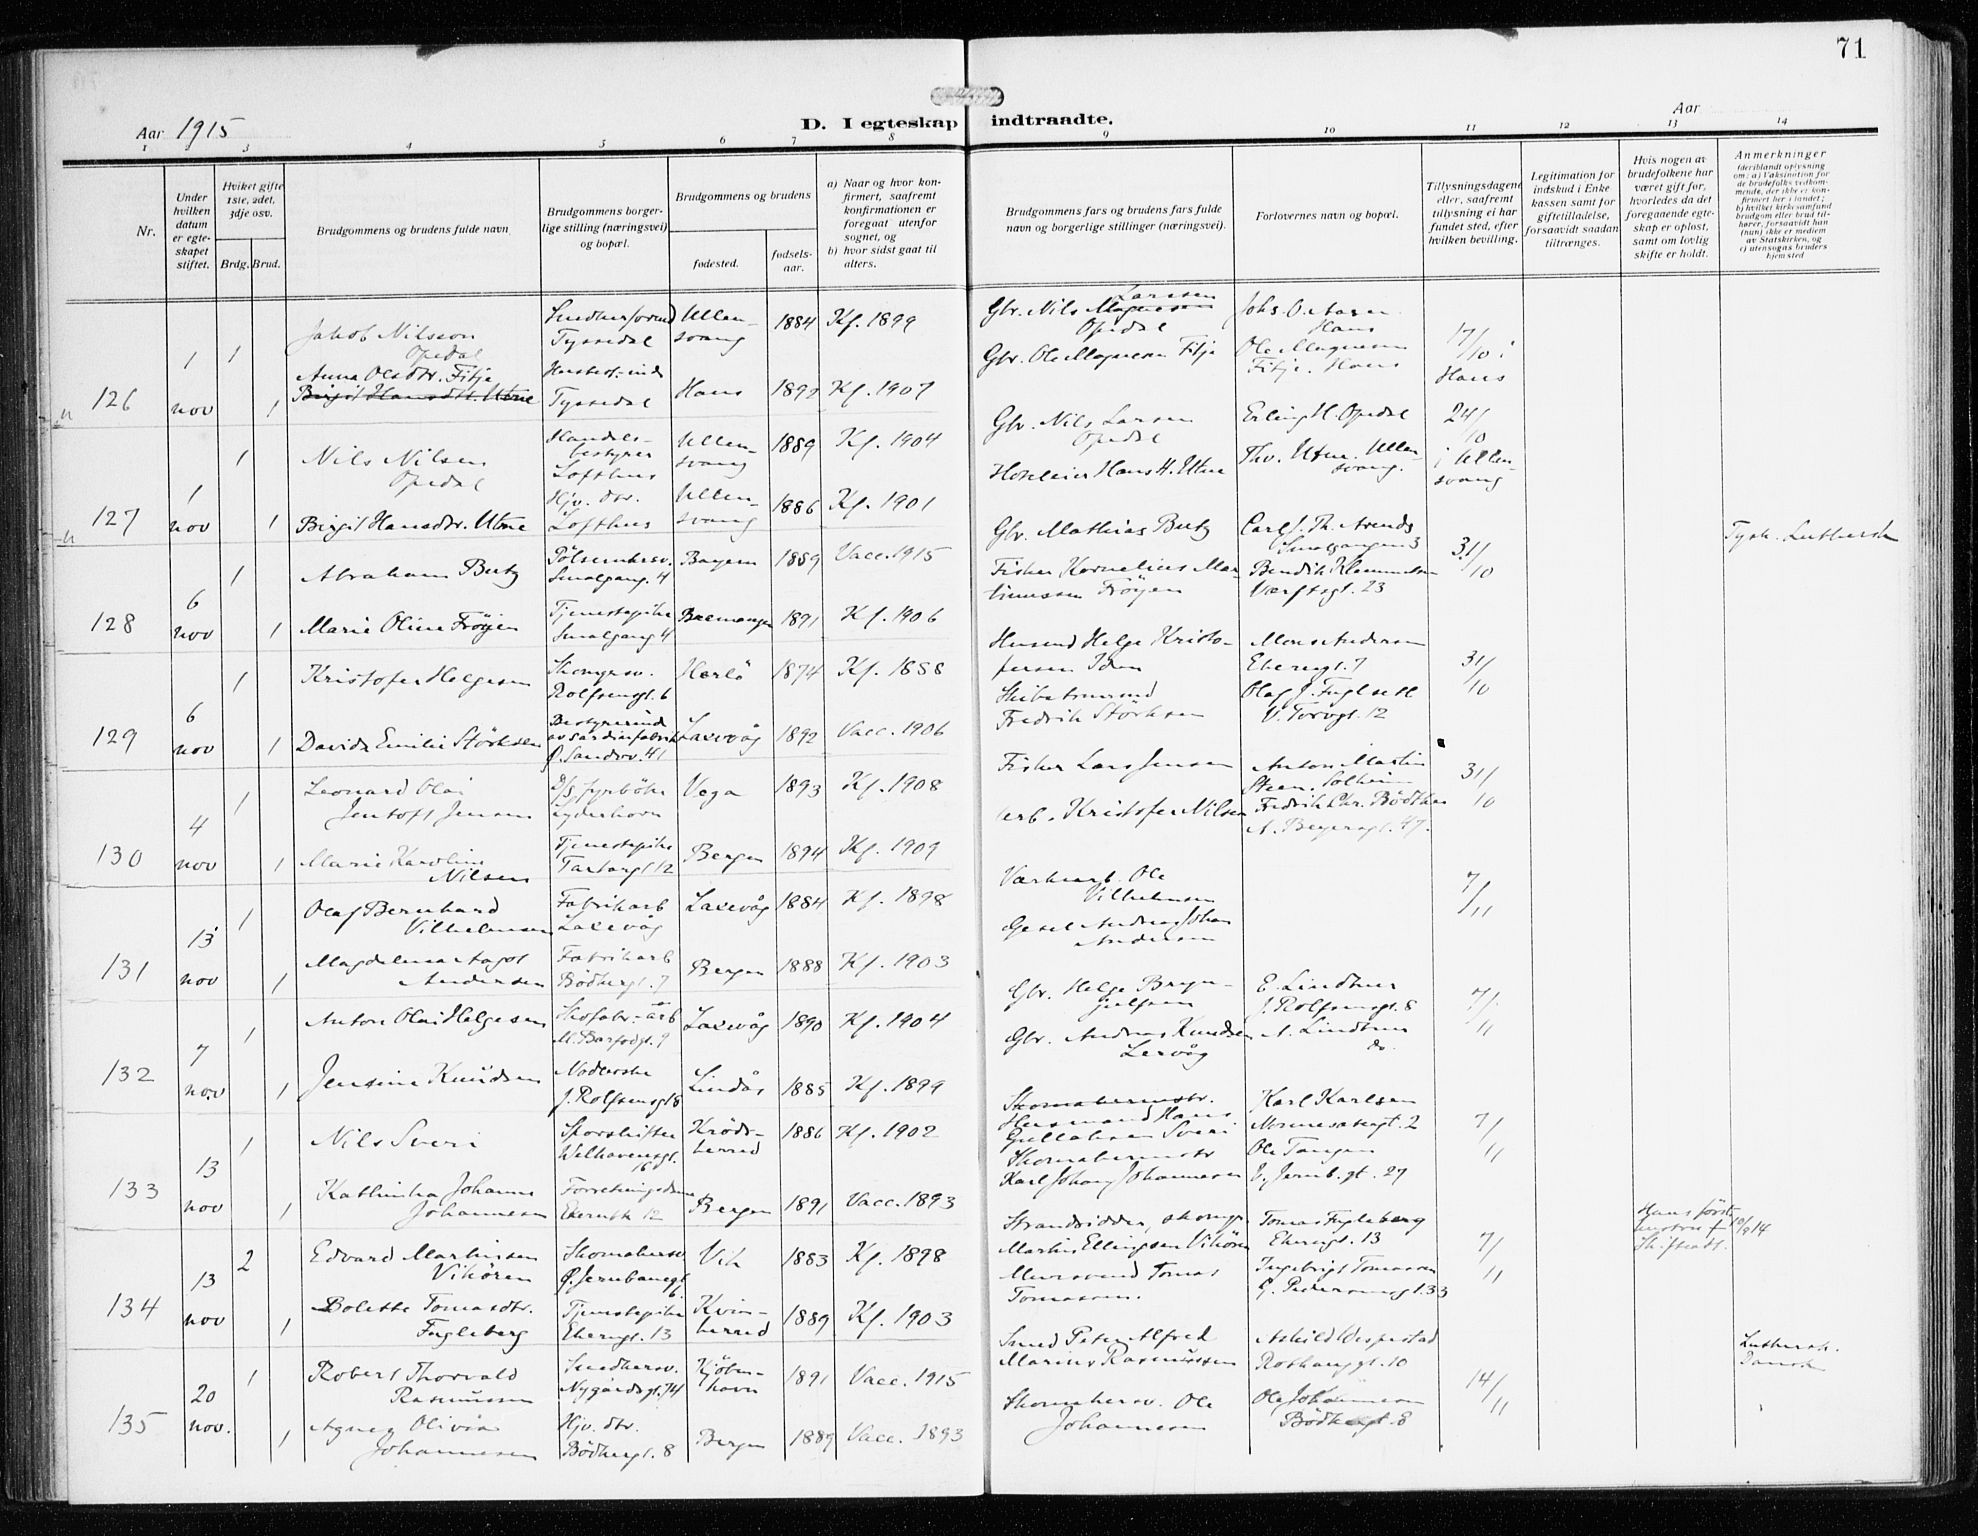 71
Aar 1915
D. I egteskap indtraadte.
Aar
1 2 3 4 5 6 7 8 9 10 11 12 13 14
Nr.
Under hvilken datum er egteskapet stiftet.
Hvilket gifte 1ste, 2det, 3dje osv.
Brdg. Brud.
Brudgommens og brudens fulde navn
Brudgommens borgerlige stilling (næringsvei) og bopæl.
Brudgommens og brudens
fødested.
fødselsaar.
a) Naar og hvor konfirmert, saafremt konfirmationen er foregaat utenfor sognet, og
b) hvor sidst gaat til alters.
Brudgommens fars og brudens fars fulde navn og borgerlige stillinger (næringsvei).
Forlovernes navn og bopæl.
Tillysningsdagene eller, saafremt tillysning ei har fundet sted, efter hvilken bevilling.
Legitimation for indskud i Enkekassen samt for giftetilladelse, forsaavidt saadan tiltrænges.
Hvis nogen av brudefolkene har været gift før, hvorledes da det foregaaende egteskap er opløst, samt om lovlig skifte er holdt.
Anmerkninger
(deriblandt oplysning om: a) Vaksination for de brudefolks vedkommende, der ikke er konfirmert her i landet; b) hvilket kirkesamfund brudgom eller brud tilhører, forsaavidt han (hun) ikke er medlem av Statskirken, og c) utensogns bruders hjemsted
126 1 nov 1 Jakob Nilsson Opedal Tyssedal Ullensvang 1884 Kf. 1899 Gbr. Nils Larssen Opedal Johs. O. Aasen Hans 17/10 i
1 Anna Olsdtr. Fitje Birgit Hansdtr. Utne Tyssedal Hans 1892 Kf. 1907 Gbr. Ole Magnesen Fitje Ole Magnesen Fitje. Hans Hans
127 1 nov 1 Nils Nilsen Opedal Handelsbestyrer Lofthus Ullensvang 1889 Kf. 1904 Gbr. Nils Larsen Opedal Erling H. Opedal 24/10
1 Birgit Hansdtr. Utne Hjv. dtr. Lofthus Ullensvang 1886 Kf. 1901 Hoteleier Hans H. Utne Thv. Utne. Ullensvang. i Ullensvang
128 6 nov 1 Abraham Butz Pølsemakersv. Smalgang. 4 Bayern 1889 Vacc. 1915 Gbr. Mathias Butz Carl J. Th. Arends Smalgangen 3 31/10 Tysk. Luthersk
1 Marie Oline Frøyen Tjenestepike Smalgang 4 Bremanger 1891 Kf. 1906 Fisker Kornelius Martinussen Frøyen Bendik Klemmetsen Verftsgt. 23
129 6 nov 1 Kristofer Helgesen Skomgrsv. Rolfsensgt. 6 Herlø 1874 Kf. 1888 Husmd Helge Kristofersen Mons Andersen Ekerengt. 7 31/10
1 Davida Emilie Störksen Bestyrerinde av sardinfabrik Ø. Sandsv. 41 Laxevåg 1892 Vacc. 1906 Skibstømmermd Fredrik Störksen Olaf J. Fuglseth V. Torvgt. 12
130 4 nov 1 Leonard Olai Jentoft Jensen D/S fyrbøter Vega 1893 Kf. 1908 Fisker Lars Jensen Anton Martin Steen. Solheim 31/10
1 Marie Karoline Nilsen Tjenestepike Tartargt. 12 Bergen 1894 Kf. 1909 arb. Kristofer Nilsen Fredrik Chr. Bødtker A. Beyersgt. 47.
131 13 nov 1 Olaf Bernhard Vilhelmsen Fabrikarb Laxevåg Laxevåg 1884 Kf. 1898 Værksarb. Ole Vilhelmsen 7/11
1 Magdalena Aagot Andersen Fabrikarb Bødkergt. 7 Bergen 1888 Kf. 1903 Gesel Andreas Johan Andersen
132 7 nov 1 Anton Olai Helgesen Skofabr.-arb M. Barfodgt. 9 Laxevåg 1890 Kf. 1904 Gbr. Helge Brynjulfsen E. Lindtner J. Rolfsensgt. 8 7/11
1 Jensine Knudsen J. Rolfsensgt 8 Lindås 1885 Kf. 1899 Gbr. Andreas Knudsen Lervåg A. Lindtner do.
133 13 nov 1 Nils Sveri Welhavensgt. Krødsherred 1886 Kf. 1902 Skomakermstr. Husmand Hans Gullaksen Sveri Karl Karlsen 7/11
1 Kathinka Johanne Johannesen Bergen 1891 Vacc. 1893 Skomakermstr Karl Johan Johannesen Ole Tangen V. Jernb.gt. 27
134 13 nov 2 Edvard Martinsen Vikøren Skomakersv Ø. Jernbanegt. 6. Vik 1883 Kf. 1898 Strandsidder, skomgr. Martin Ellingsen Vikøren Tomas Fugleberg Ekerengt. 13 7/11 Hans første hustru † 10/9 14 Skifteatt.
1 Bolette Tomasdtr. Fugleberg Tjenestepike Ekerengt. 13 Kvinherred 1889 Kf. 1903 Mursvend Tomas Tomassen. Ingebrigt Tomassen G. Pedersensgt. 33
135 20 nov. 1 Robert Thorvald Rasmussen Smedkersv. Nygårdsgt. 74 Kjøbenhavn 1891 Vacc. 1915 Smed Peter Alfred Marius Rasmussen Askild Vespestad Rothauggt. 10 14/11 Luthersk. Dansk
1 Agnes Olivia Johannesen Hjv. dtr. Bødkergt. 8 Bergen 1889 Vacc. 1893 Skomakersv. Ole Johannesen Ole Johannesen Bødkergt. 8